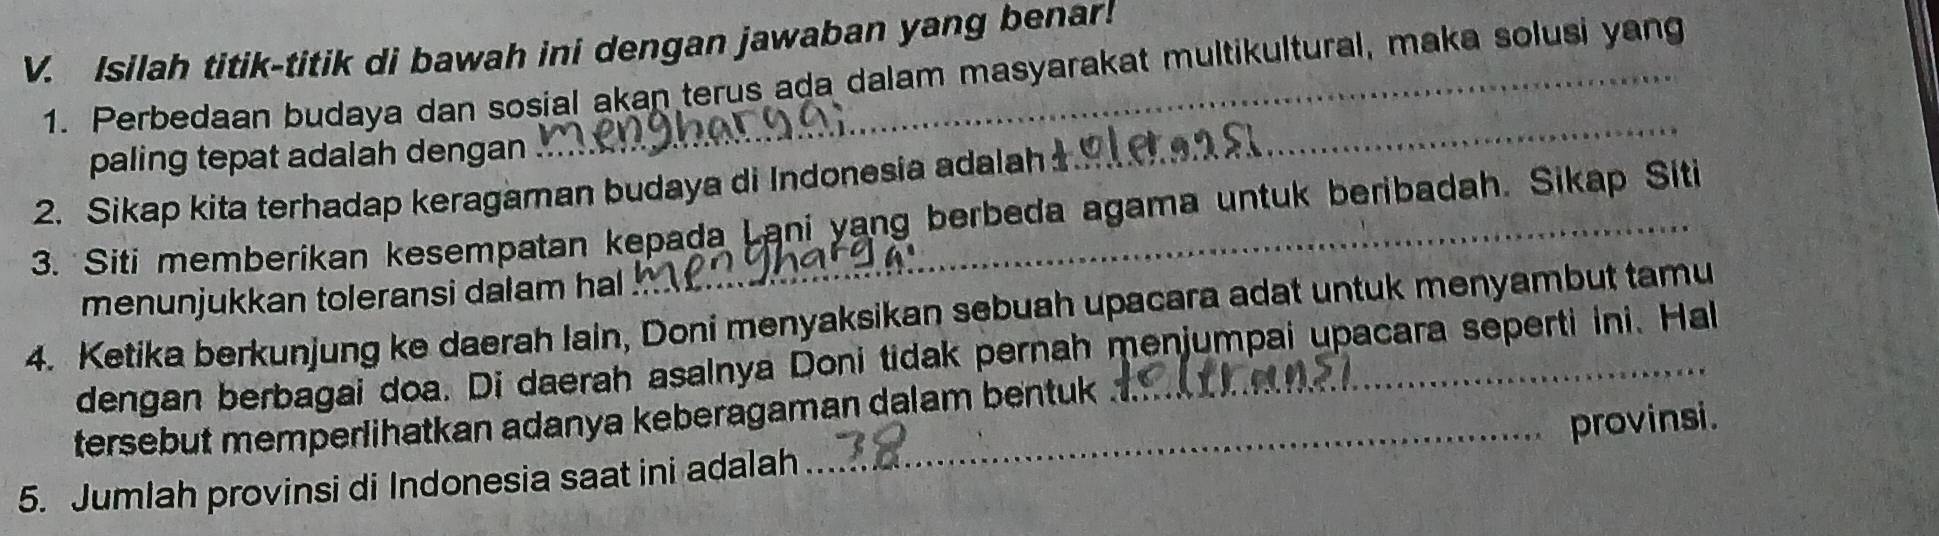 V. Isilah titik-titik di bawah ini dengan jawaban yang benar!
1. Perbedaan budaya dan sosial akan terus ada dalam masyarakat multikultural, maka solusi yang
paling tepat adalah dengan menghargai
2. Sikap kita terhadap keragaman budaya di Indonesia adalah toleransi
3. Siti memberikan kesempatan kepada Lani yang berbeda agama untuk beribadah. Sikap Siti
menunjukkan toleransi dalam hal menghargai
4. Ketika berkunjung ke daerah lain, Doni menyaksikan sebuah upacara adat untuk menyambut tamu
dengan berbagai doa. Di daerah asalnya Doni tidak pernah menjumpai upacara seperti ini. Hal
tersebut memperlihatkan adanya keberagaman dalam bentuk toleransi
5. Jumlah provinsi di Indonesia saat ini adalah 38 provinsi.